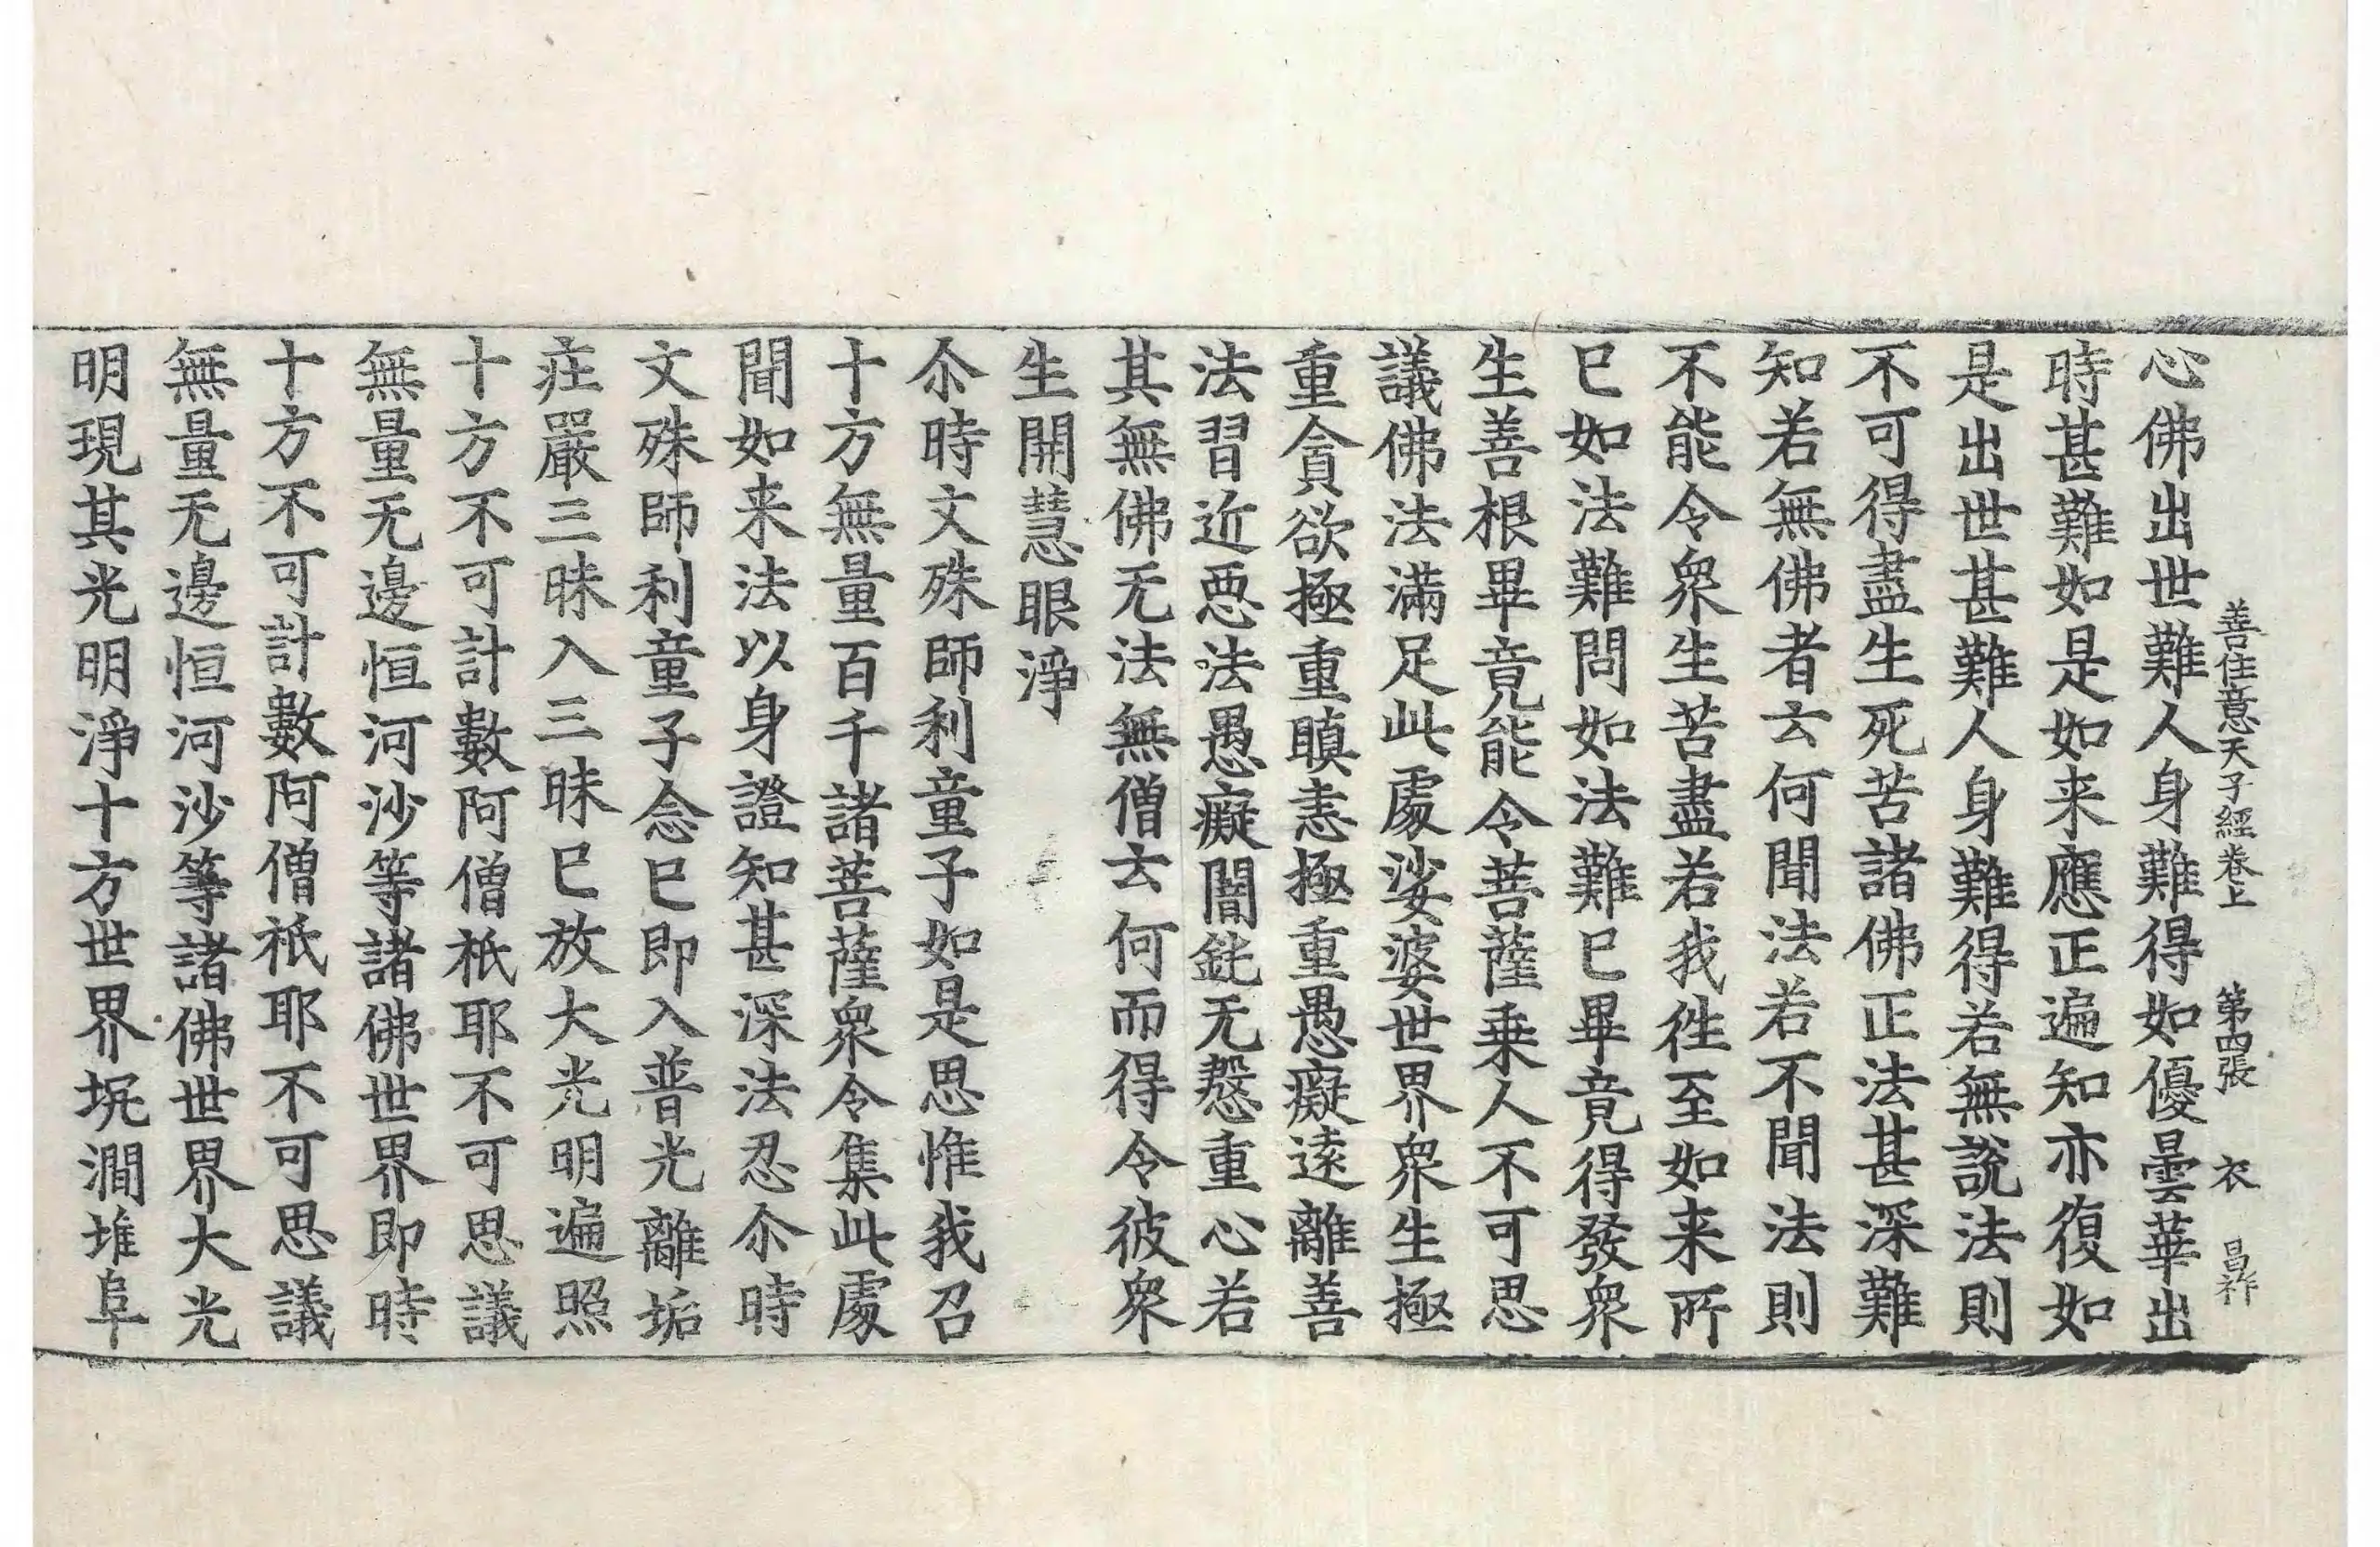 善住意天子經卷上　第四張　衣　昌祚
心佛出世難人身難得如優曇華出
時甚難如是如来應正遍知亦復如
是出世甚難人身難得若無說法則
不可得盡生死苦諸佛正法甚深難
知若無佛者云何聞法若不聞法則
不能令衆生苦盡若我徃至如来所
已如法難問如法難已畢竟得發衆
生善根畢竟能令菩薩乗人不可思
議佛法滿足此處娑婆世界衆生極
重貪欲極重瞋恚極重愚癡遠離善
法習近惡法愚癡闇鈍无慇重心若
其無佛无法無僧云何而得令彼衆
生開慧眼淨
尒時文殊師利童子如是思惟我召
十方無量百千諸菩薩衆令集此處
聞如来法以身證知甚深法忍尒時
文殊師利童子念已即入普光離垢
莊嚴三昧入三昧已放大光明遍照
十方不可計數阿僧祇耶不可思議
無量无邊恒河沙等諸佛世界即時
十方不可計數阿僧祇耶不可思議
無量无邊恒河沙等諸佛世界大光
明現其光明淨十方世界坑澗堆阜